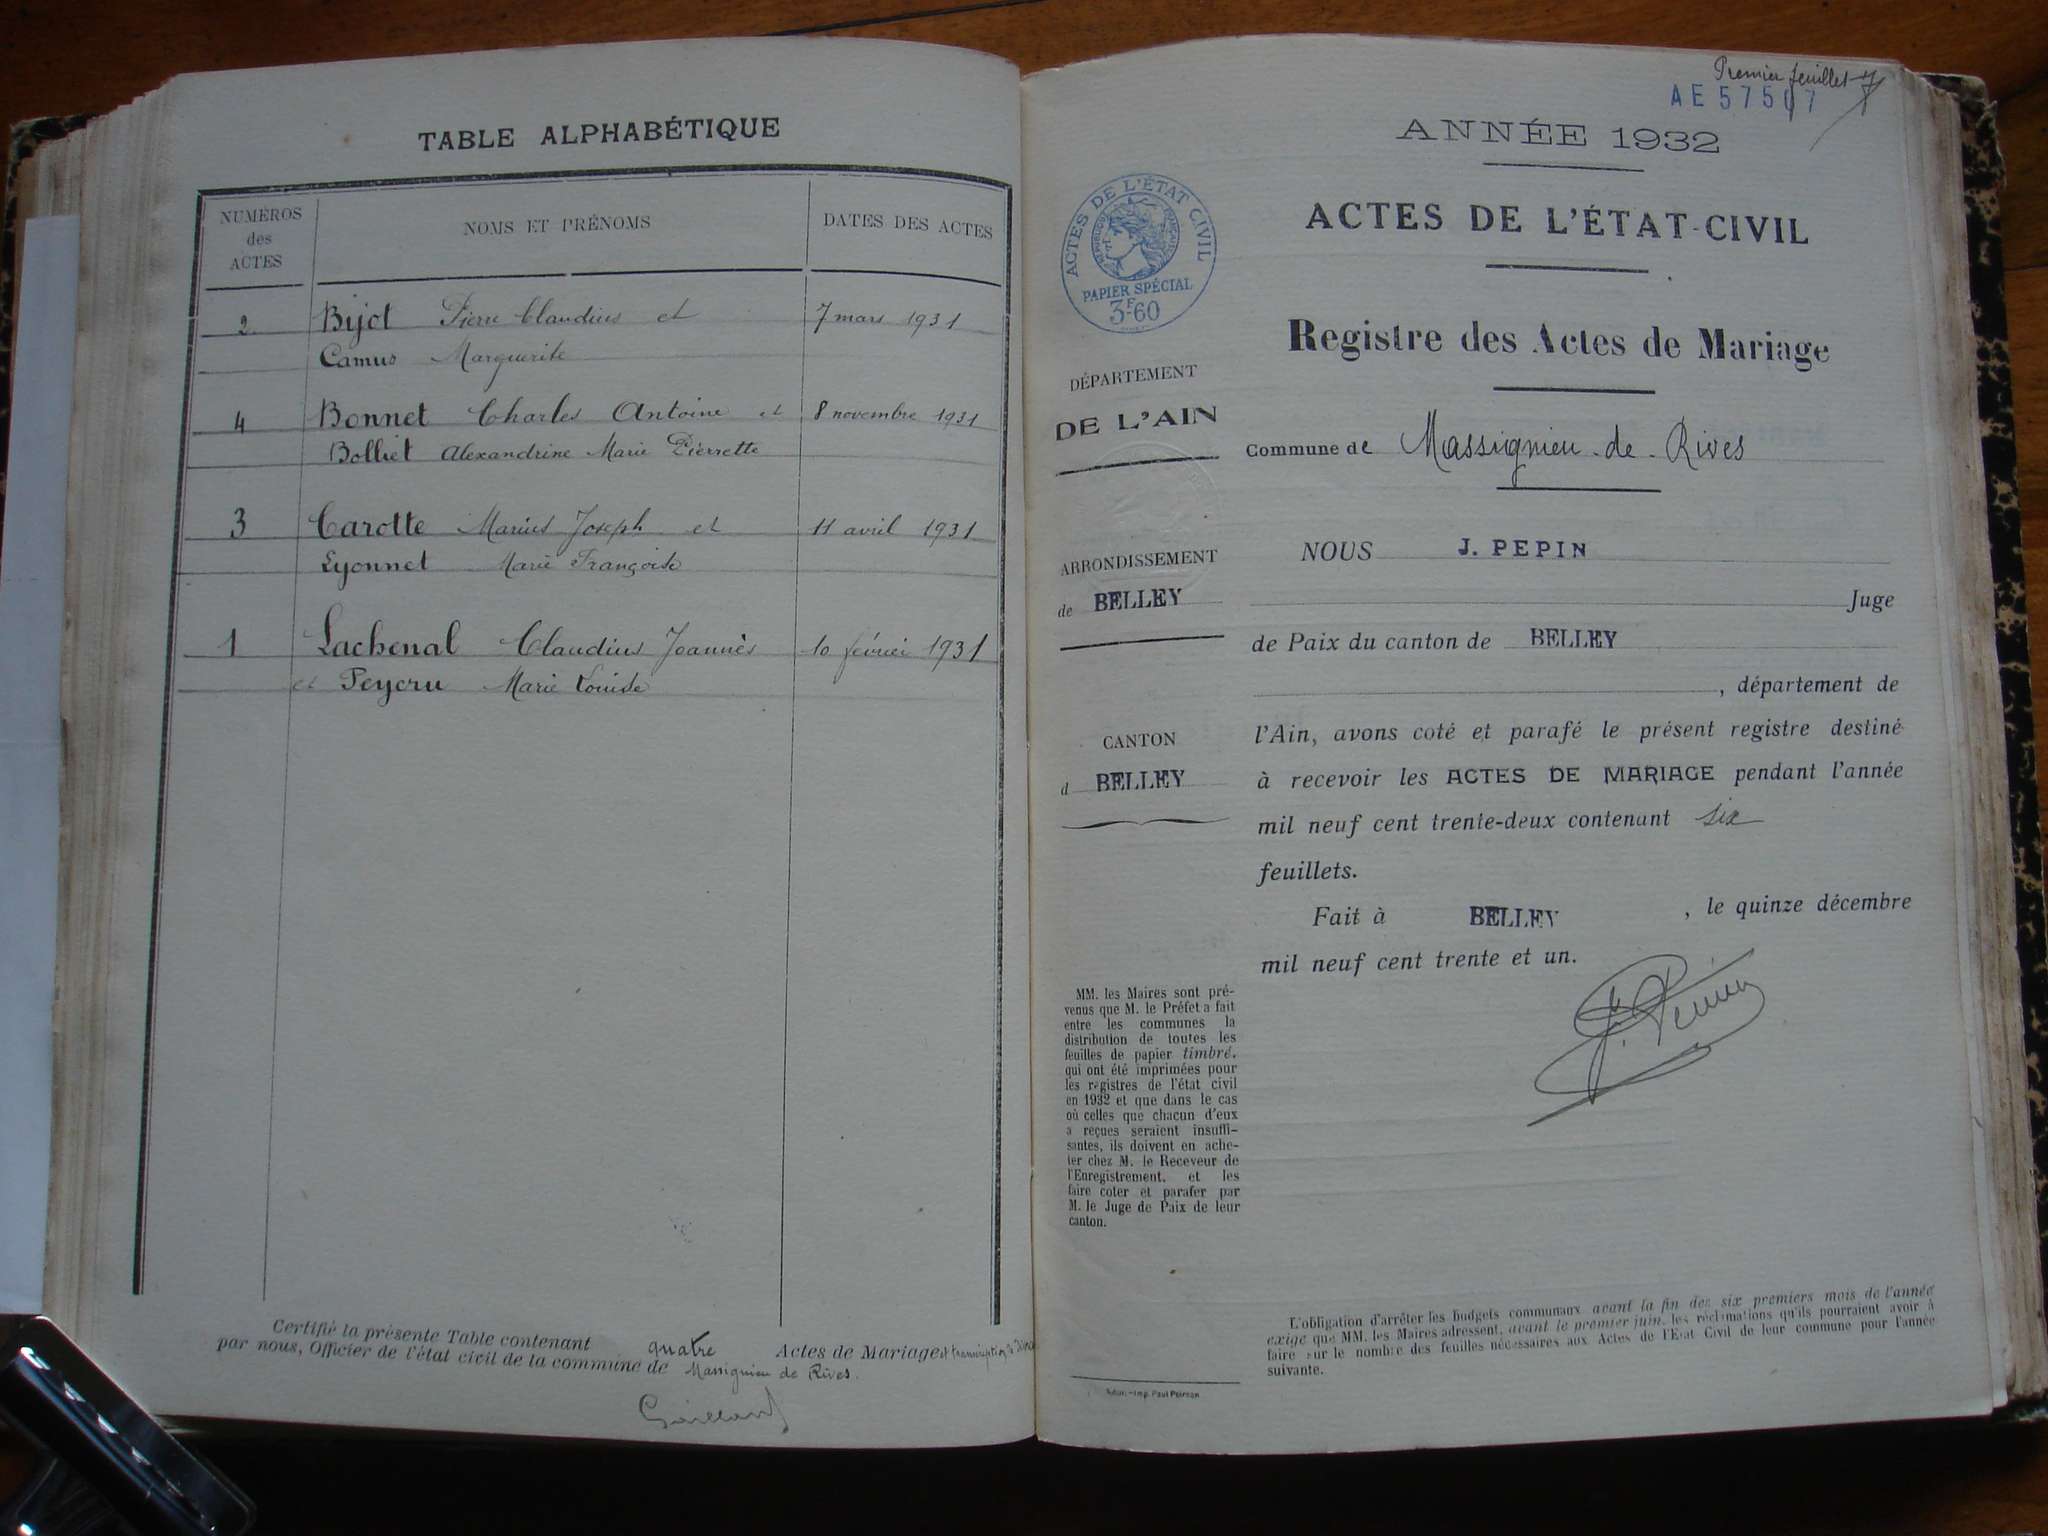 TABLE ALPHABÉTIQUE
NUMÉROS
des
ACTES
NOMS ET PRÉNOMS
DATES DES ACTES
2 Bijot Pierre Claudius et 7 mars 1931
Camus Marguerite
4 Bonnet Charles Antoine et 8 novembre 1931
Bolliet Alexandrine Marie Pierrette
3 Carotte Marius Joseph et 11 avril 1931
Lyonnet Marie Françoise
1 Lachenal Claudius Joannès 10 février 1931
et Peycru Marie Louise
Certifié la présente Table contenant quatre Actes de Mariage et transcription de
par nous, Officier de l'état civil de la commune de Massignieu de Rives.
Gaillard
Premier feuillet
AE 57507
ANNÉE 1932
ACTES DE L'ÉTAT CIVIL
RÉPUBLIQUE FRANÇAISE
PAPIER SPÉCIAL
3F60
ACTES DE L'ÉTAT-CIVIL
Registre des Actes de Mariage
DÉPARTEMENT
DE L'AIN
Commune de Massignieu-de-Rives
ARRONDISSEMENT
de BELLEY
CANTON
d BELLEY
NOUS J. PEPIN
Juge
de Paix du canton de BELLEY
, département de
l'Ain, avons coté et parafé le présent registre destiné
à recevoir les ACTES DE MARIAGE pendant l'année
mil neuf cent trente-deux contenant six
feuillets.
Fait à BELLEY, le quinze décembre
mil neuf cent trente et un.
J. Pepin
MM. les Maires sont pré-
venus que M. le Préfet a fait
entre les communes la
distribution de toutes les
feuilles de papier timbré,
qui ont été imprimées pour
les registres de l'état civil
en 1932 et que dans le cas
où celles que chacun d'eux
a reçues seraient insuffi-
santes, ils doivent en ache-
ter chez M. le Receveur de
l'Enregistrement, et les
faire coter et parafer par
M. le Juge de Paix de leur
canton.
L'obligation d'arrêter les budgets communaux avant la fin des six premiers mois de l'année
exige que MM. les Maires adressent, avant le premier juin, les réclamations qu'ils pourraient avoir à
faire sur le nombre des feuilles nécessaires aux Actes de l'État Civil de leur commune pour l'année
suivante.
Imp. Paul